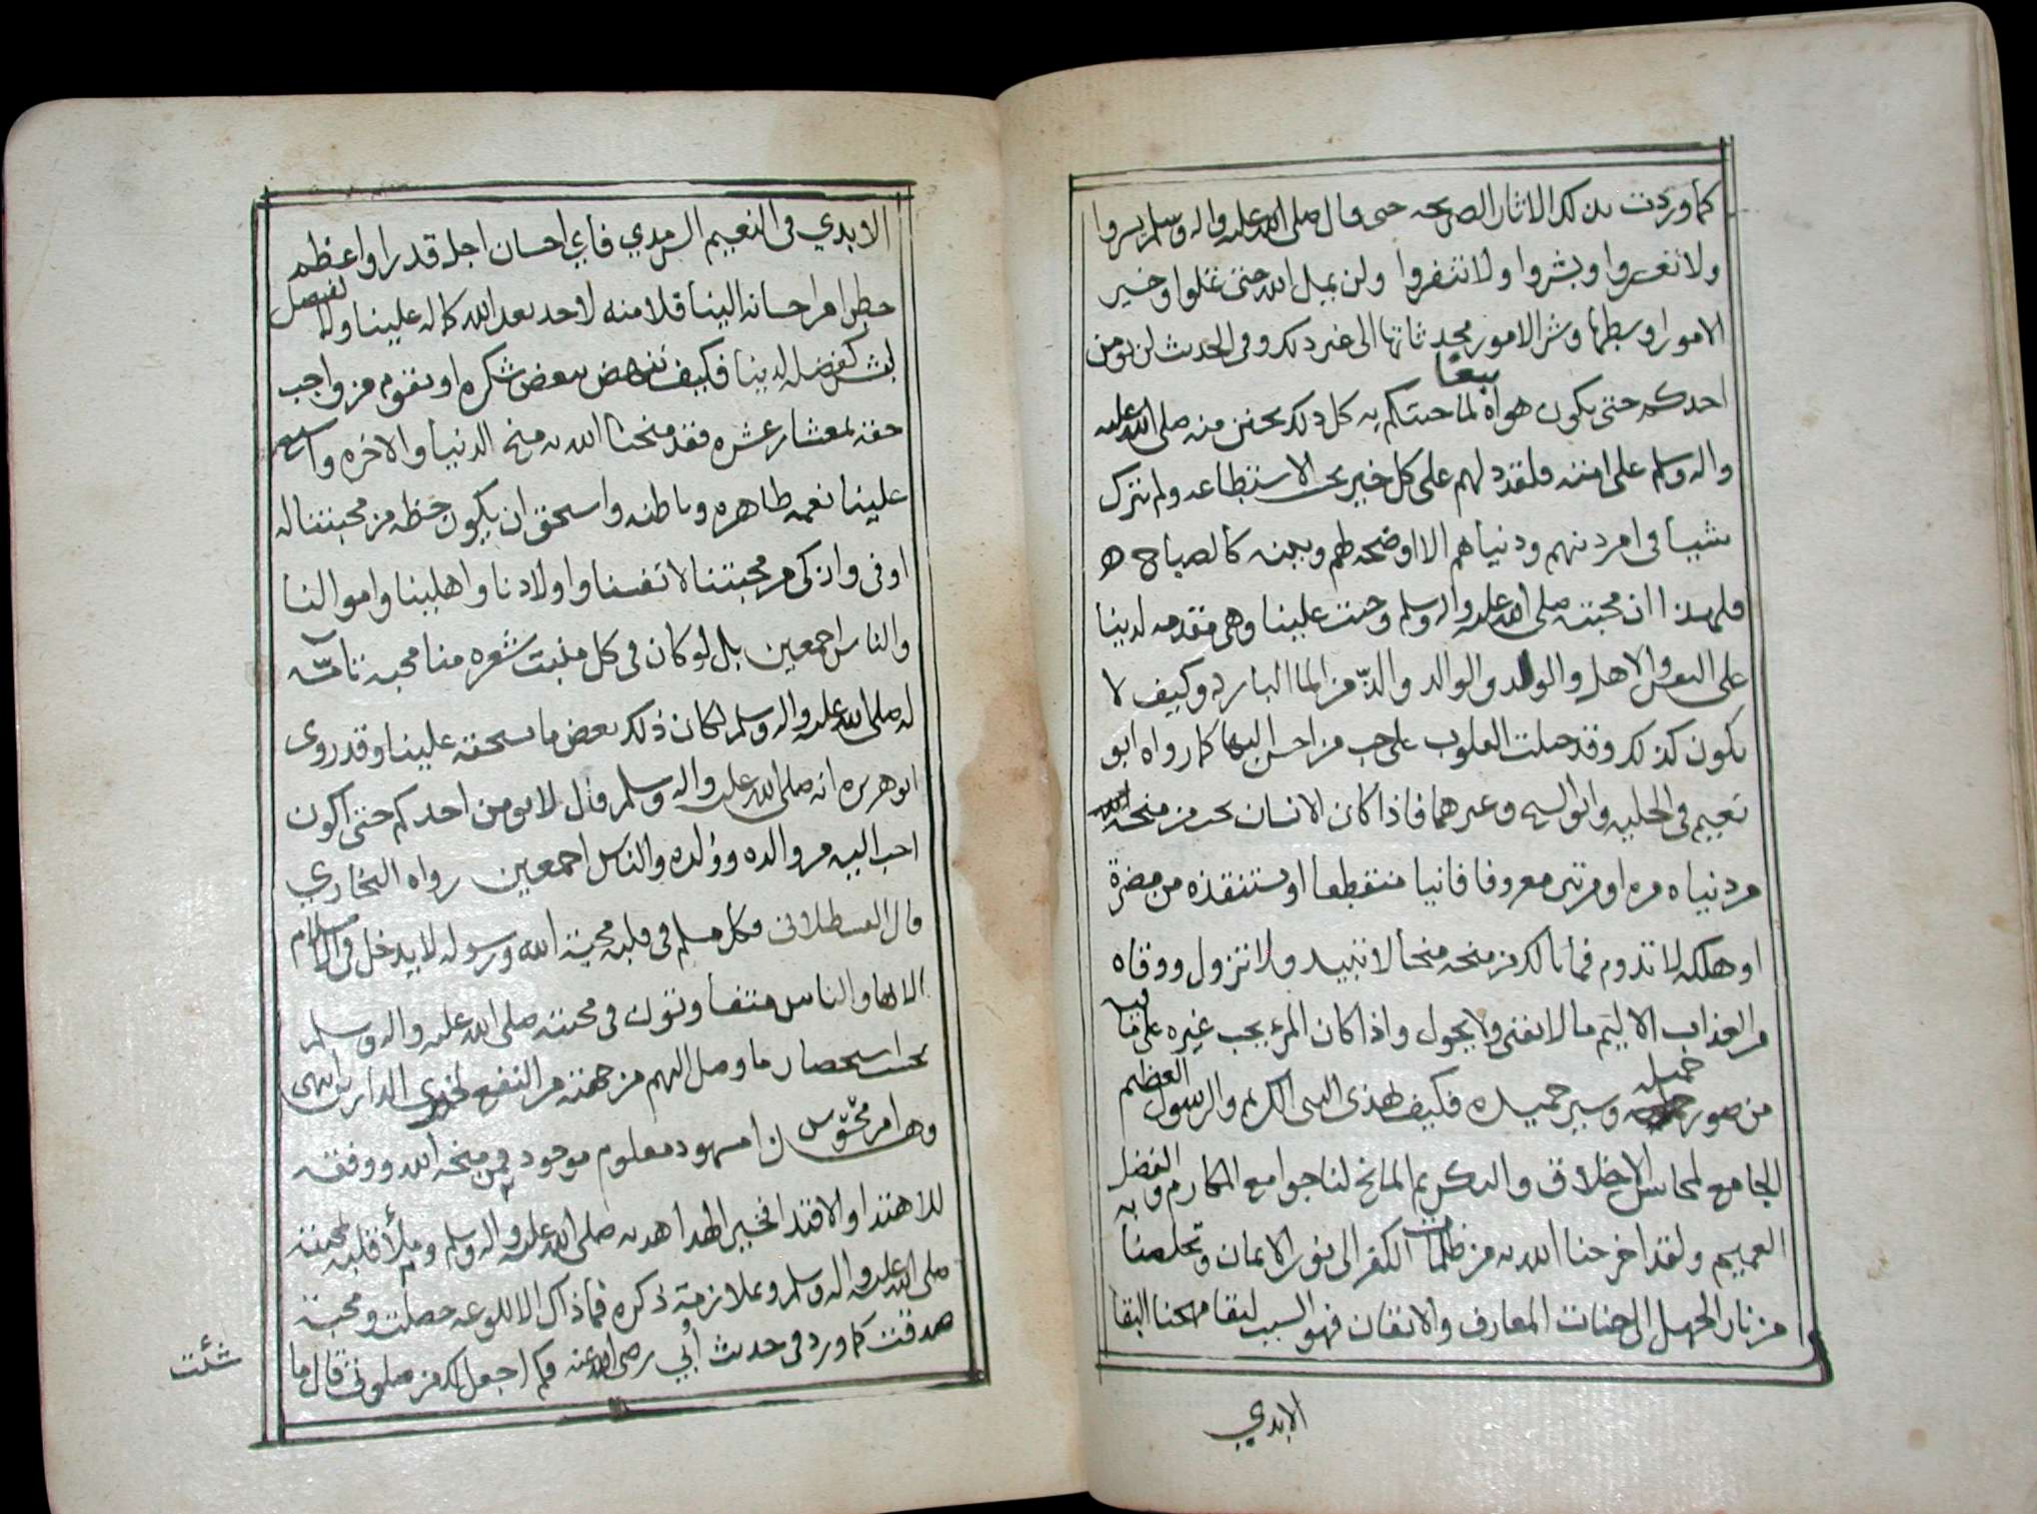 كما وردت بذلك الاثار الصريحه حتى قال صلى الله عليه واله وسلم يسروا
ولا تعسروا وبشروا ولا تنفروا ولن يمل الله حتى تملوا وخير
الامور اوسطها وشر الامور محدثاتها الى غير ذلك وفي الحديث لن يومن
احدكم حتى يكون هواه تبعا لما جيتكم به كل ذلك تحنن منه صلى الله عليه
واله وسلم على امته فلقد دلهم على كل خير بحسب الاستطاعه ولم يترك
شيا في امر دينهم ودنياهم الا اوضحه لهم وبينه كالصباح ه
فلهذا ان محبته صلى الله عليه واله وسلم وجبت علينا وهي مقدمه لدينا
على النفس والاهل والولد والوالد والذ من الما البارد وكيف لا
يكون كذلك وقد جبلت القلوب على حب من احسن اليها كما رواه ابو
نعيم في الحليه وابو الشيخ وغيرهما فاذا كان الانسان يحب من منحه
من دنياه مره او مرتين معروفا فانيا منقطعا او ستنقذه من مضرة
او هلكه لا تدوم فما بالك من منحه منحا لا تبيد ولا تزول ووقاه
من العذاب الاليم ما لا يفنى ولا يحول واذا كان المرء يحب غيره على ما فيه
من صور جميله وسير حميده فكيف بهذى النبى الكريم والرسول العظيم
الجامع لمحاسن الاخلاق والتكريم المانح لنا جوامع المكارم والفضل
العميم ولقد اخرجنا الله به من ظلمات الكفر الى نور الايمان وتخلصنا به
من نار الجهل الى جنات المعارف والاتقان فهو السبب لبقا مهجنا البقا
الابدي
الابدي في النعيم السرمدي فاي احسان اجل قدرا واعظم
خطرا من احسانه الينا فلا منه لاحد بعد الله كما له علينا ولا فضل
لبشر كفضله لدينا فكيف ننهض ببعض شكره او نقوم من واجب
حقه بمعشار عشره فقد منحنا الله به منح الدنيا والاخره واسبغ
علينا نعمه ظاهره وباطنه واستحق ان يكون حظه من محبتنا له
اوفى وازكى من محبتنا لانفسنا واولادنا واهلينا واموالنا
والناس اجمعين بل لو كان في كل منبت شعره منا محبه تامة
له صلى الله عليه واله وسلم لكان ذلك بعض ما يستحقه علينا وقد روى
ابو هريره انه صلى الله عليه واله وسلم قال لا يومن احدكم حتى اكون
احب اليه من والده وولده والناس اجمعين رواه البخاري
قال القسطلانى فكل مسلم في قلبه محبة الله ورسوله لا يدخل في الاسلام
الا بها والناس متفاوتون في محبته صلى الله عليه واله وسلم
بحسب استحضار ما وصل اليهم من جهته من النفع لخيري الدارين انتهى
وهذا امر محسوس مشهود معلوم موجود فيمن منحه الله ووفقه
للاهتدا والاقتدا بخير الهدا هديه صلى الله عليه واله وسلم وملأ قلبه بمحبته
صلى الله عليه واله وسلم وملازمة ذكره فما ذاك الا للوعه حصلت ومحبة
صدقت كما ورد في حديث أبي رضي الله عنه فكم اجعل لك من صلوتى قال ما
شئت